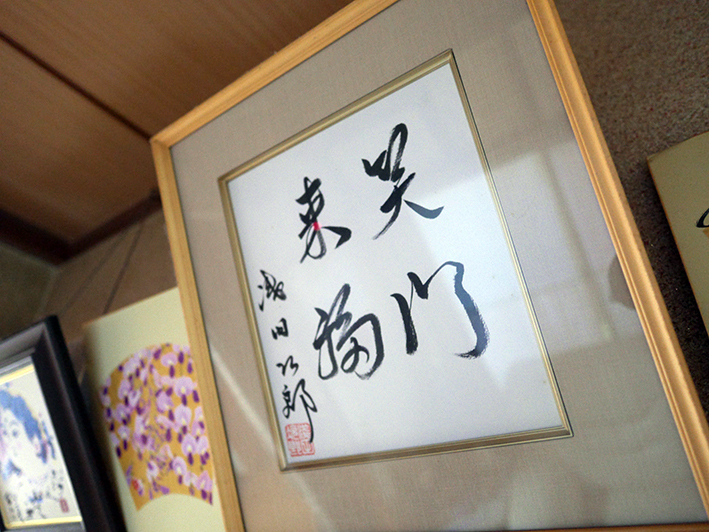 笑門
来福
浅田次郎